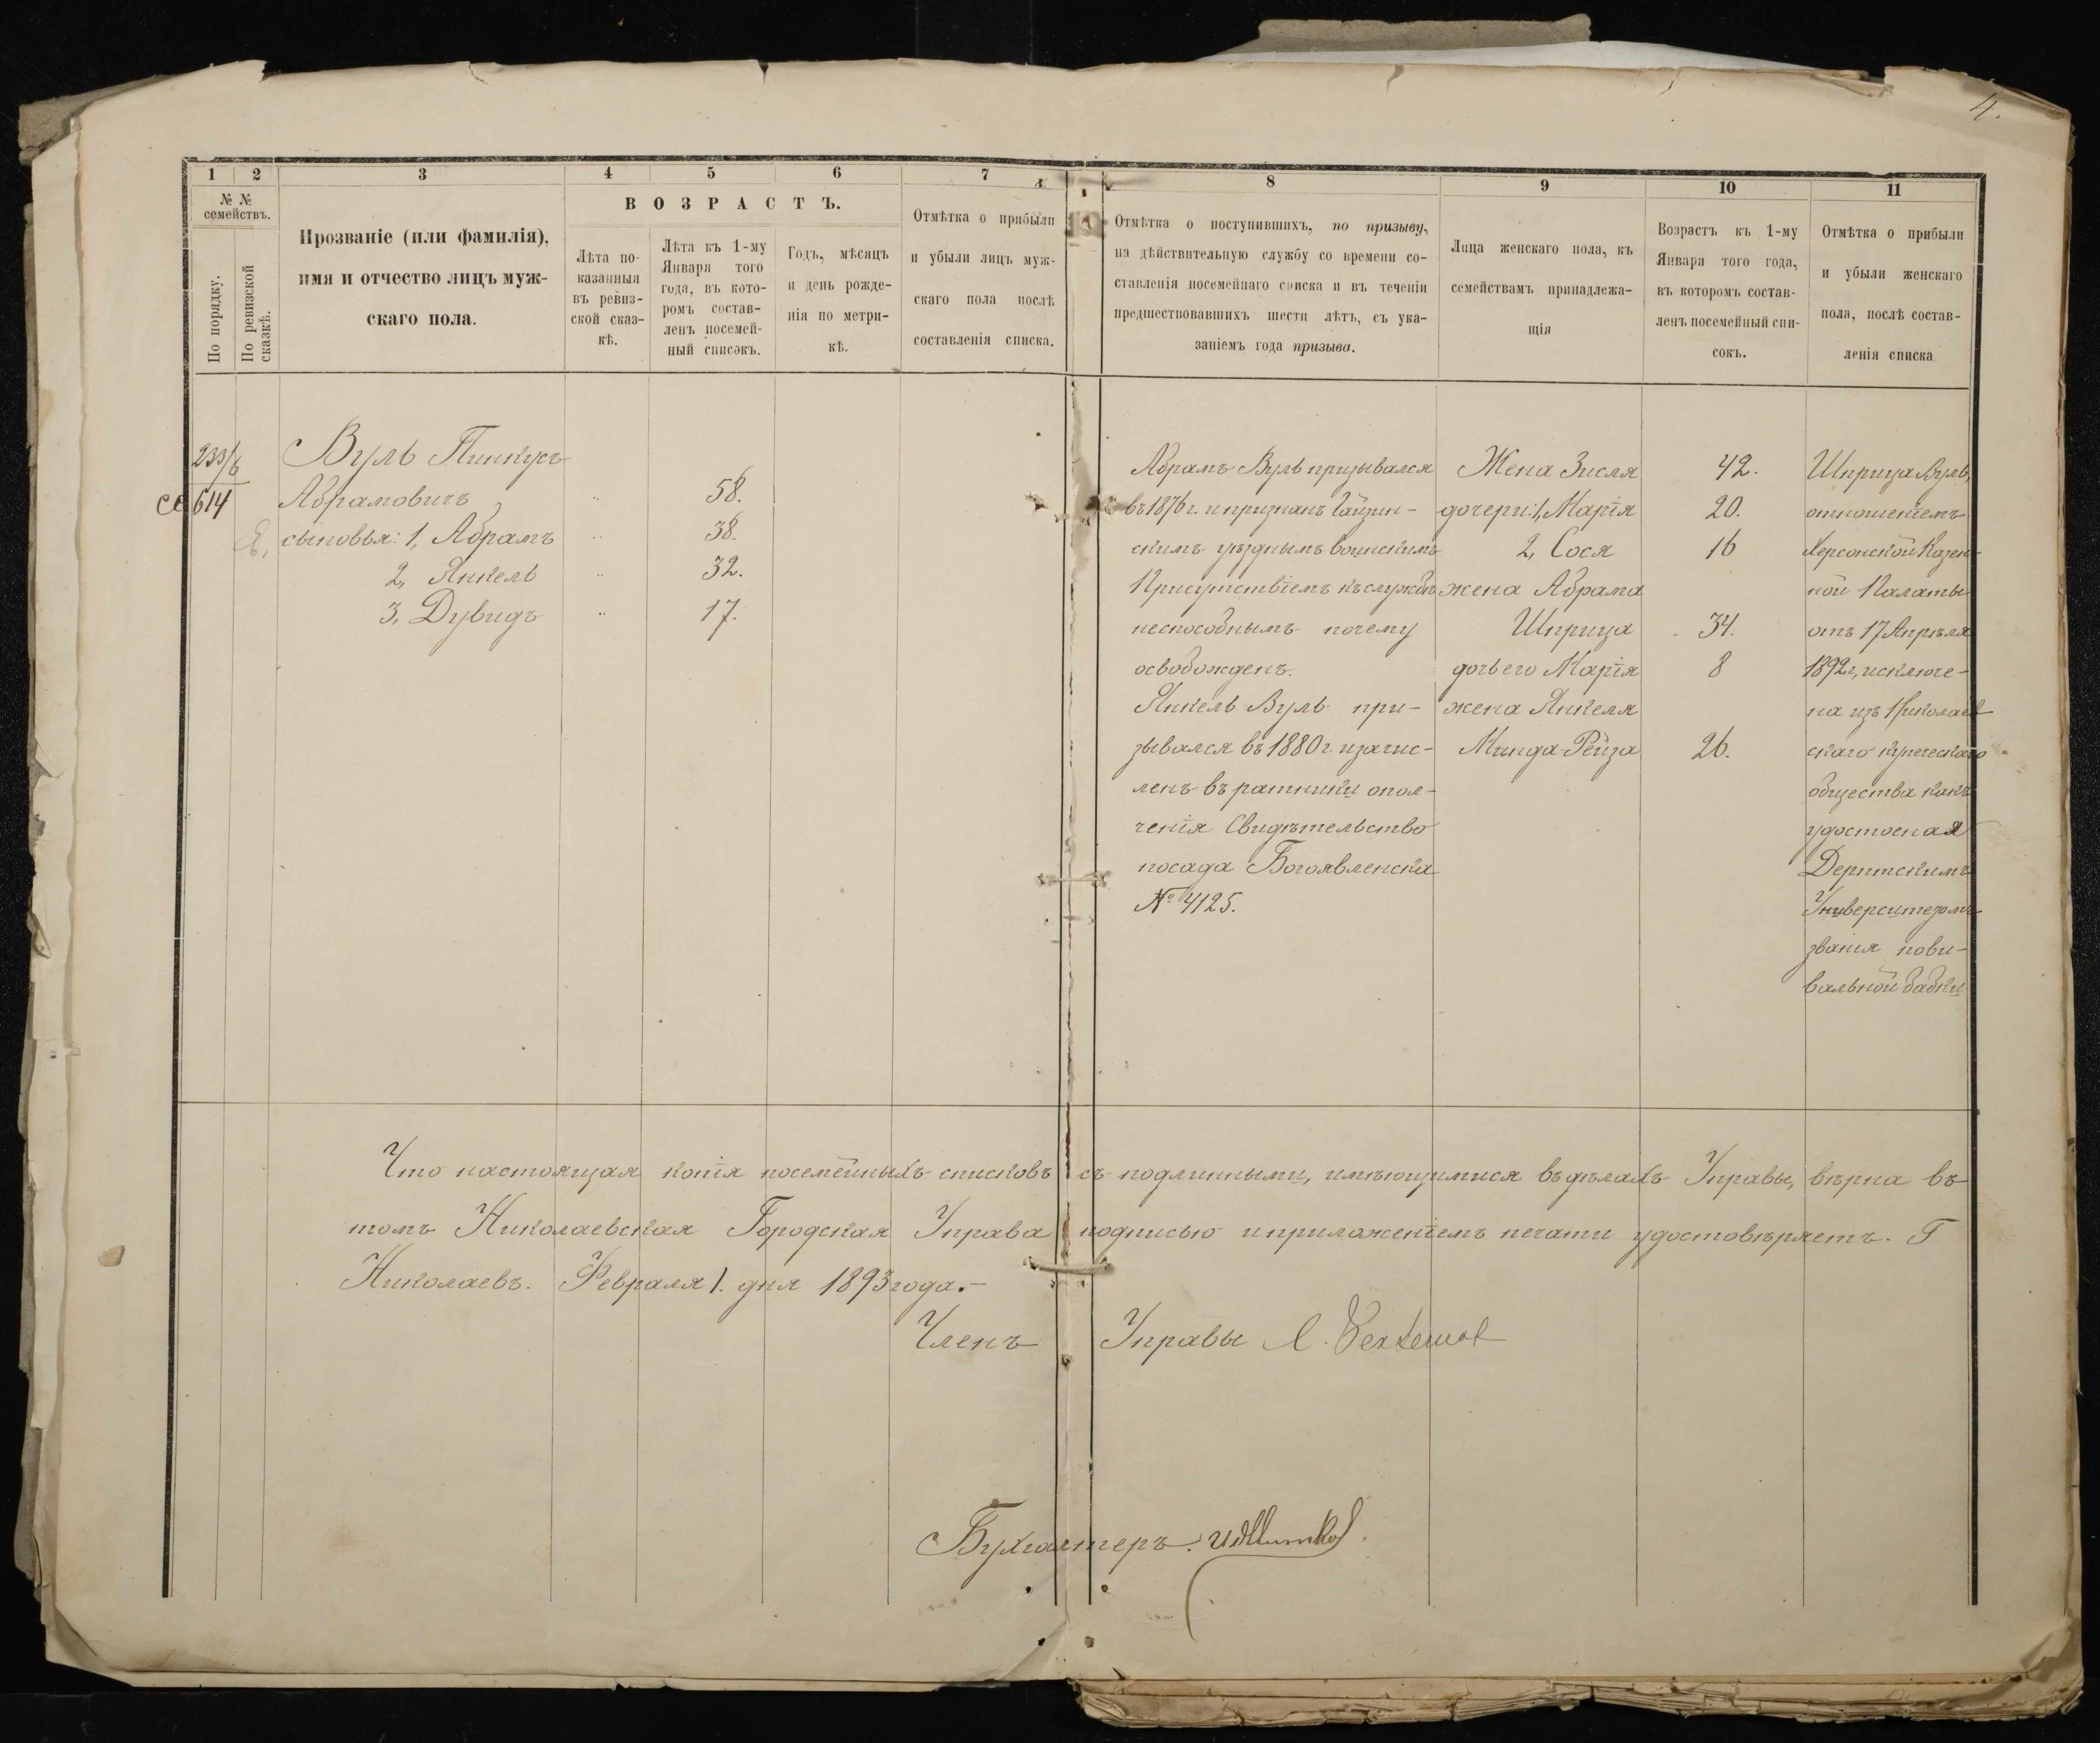 4.
1 2 3 4 5 6 7
№ №
семействъ.
По порядку.
По ревизской
сказкѣ.
Прозваніе (или фамилія),
имя и отчество лицъ муж-
скаго пола.
ВОЗРАСТЪ.
Лѣта по-
казанныя
въ ревиз-
ской сказ-
кѣ.
Лѣта къ 1-му
Января того
года, въ кото-
ромъ состав-
ленъ посемей-
ный списокъ.
Годъ, мѣсяцъ
и день рожде-
нія по метри-
кѣ.
Отмѣтка о прибыли
и убыли лицъ муж-
скаго пола послѣ
составленія списка.
8 9 10 11
Отмѣтка о поступившихъ, по призыву,
на дѣйствительную службу со времени со-
ставленія посемейнаго списка и въ теченіи
предшествовавшихъ шести лѣтъ, съ ука-
заніемъ года призыва.
Лица женскаго пола, къ
семействамъ принадлежа-
щія
Возрастъ къ 1-му
Января того года,
въ которомъ состав-
ленъ посемейный спи-
сокъ.
Отмѣтка о прибыли
и убыли женскаго
пола, послѣ состав-
ленія списка
614
Вуль Пинкусъ
Абрамовичъ 58.
сыновья: 1, Абрамъ 38.
2, Янкель 32.
3, Дувидъ 17.
Абрамъ Вуль призывался
въ 1876 г. и признанъ Гайзин-
скимъ уѣзднымъ воинскимъ
Присутствіемъ къ службѣ
неспособнымъ почему
освобожденъ.
Янкель Вуль при-
зывался въ 1880 г. и зачис-
ленъ въ ратники опол-
ченія Свидѣтельство
посада Богоявленска
№ 4125.
Жена Зисля 42.
дочери: 1, Марія 20.
2, Сося 16
жена Абрама
Шприца 34.
дочь его Марія 8
жена Янкеля
Минда-Рейза 26.
Шприца Вуль,
отношеніемъ
Херсонской Казен-
ной Палаты
отъ 17 Апрѣля
1892 г, исключе-
на изъ Николаев
скаго купеческаго
общества какъ
удостоеная
Дерптскимъ
Университетомъ
званія пови-
вальной бабки
Что настоящая копія посемейныхъ списковъ съ подлинными, имѣющимися въ дѣлахъ Управы, вѣрна въ
томъ Николаевская Городская Управа подписью и приложеніемъ печати удостовѣряетъ. Г
Николаевъ. Февраля 1. дня 1893 года.-
Членъ Управы
Бухгалтеръ.